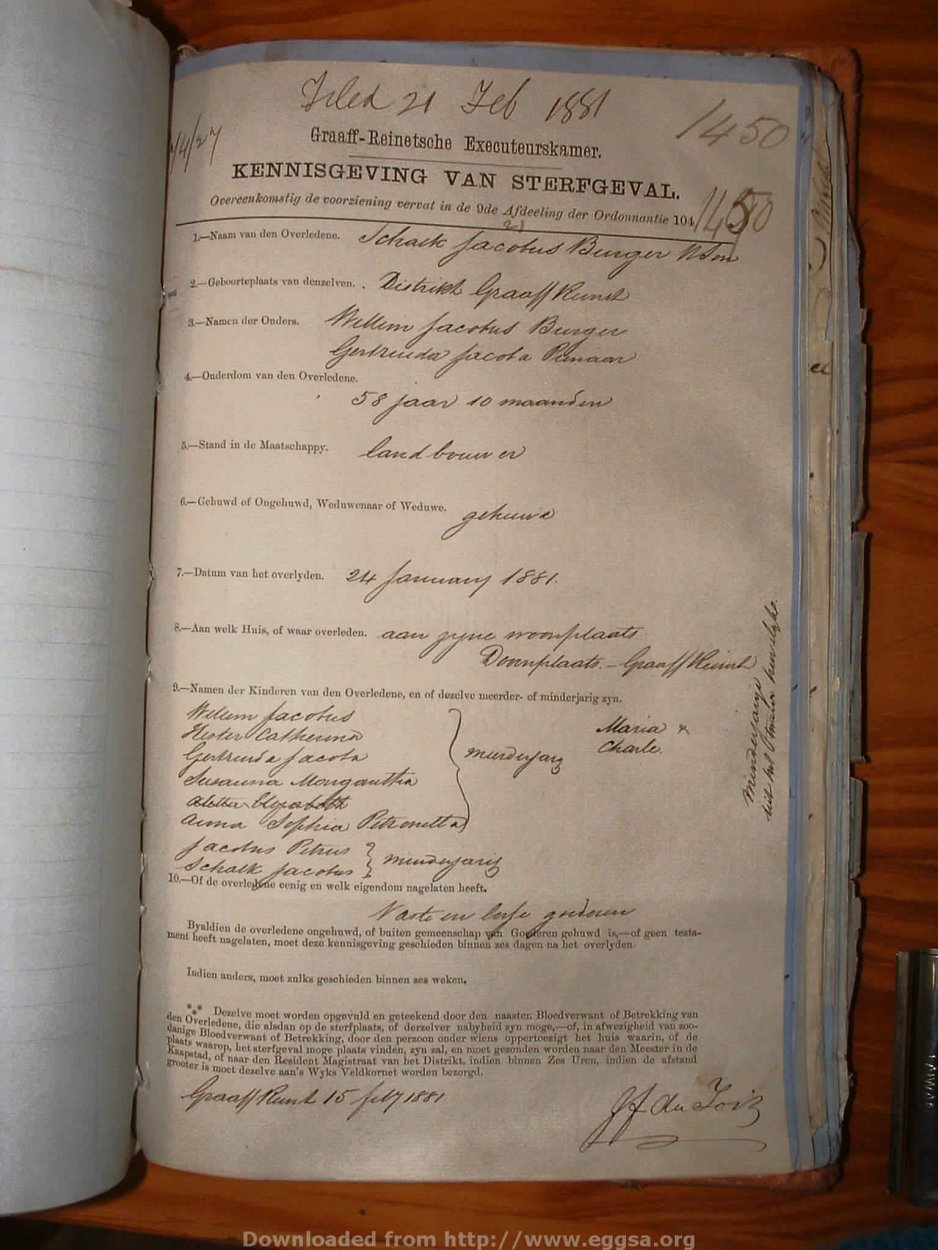 Filed 21 Feb 1881
1450
Graaff-Reinetsche Executeurskamer.
KENNISGEVING VAN STERFGEVAL.
Overeenkomstig de voorziening vervat in de 9de Afdeeling der Ordonnantie 104
1.—Naam van den Overledene. Schalk Jacobus Burger WSon
2.—Geboorteplaats van denzelven. Distrikt Graaff Reinet
3.—Namen der Ouders. Willem Jacobus Burger
Gertruida Jacoba Pienaar
4.—Ouderdom van den Overledene.
58 jaar 10 maanden
5.—Stand in de Maatschappy. landbouwer
6.—Gehuwd of Ongehuwd, Weduwenaar of Weduwe. gehuwd
7.—Datum van het overlyden. 24 January 1881.
8.—Aan welk Huis, of waar overleden. aan zyne woonplaats
Doornplaats.—Graaff Reinet
9.—Namen der Kinderen van den Overledene, en of dezelve meerder- of minderjarig zyn.
Willem Jacobus
Hester Catherina
Gertruida Jacoba
Susanna Margaretha
Aletta Elizabeth
Anna Sophia Petronella
meerderjarig
Jacobus Petrus
Schalk Jacobus
minderjarig
Maria &
Charle
minderjarige
uit het huwelyk.
10.—Of de overledene eenig en welk eigendom nagelaten heeft.
Vaste en losse goederen
Byaldien de overledene ongehuwd, of buiten gemeenschap van Goederen gehuwd is,—of geen testa-
ment heeft nagelaten, moet deze kennisgeving geschieden binnen zes dagen na het overlyden.
Indien anders, moet zulks geschieden binnen zes weken.
Dezelve moet worden opgevuld en geteekend door den naasten Bloedverwant of Betrekking van
den Overledene, die alsdan op de sterfplaats, of derzelver nabyheid zyn moge,—of, in afwezigheid van zoo-
danige Bloedverwant of Betrekking, door den perzoon onder wiens oppertoezigt het huis waarin, of de
plaats waarop, het sterfgeval moge plaats vinden, zyn zal, en moet gezonden worden naar den Meester in de
Kaapstad, of naar den Resident Magistraat van het Distrikt, indien binnen Zes Uren, indien de afstand
grooter is moet dezelve aan's Wyks Veldkornet worden bezorgd.
Graaff Reinet 15 feby 1881
JF du Toit
Downloaded from http://www.eggsa.org